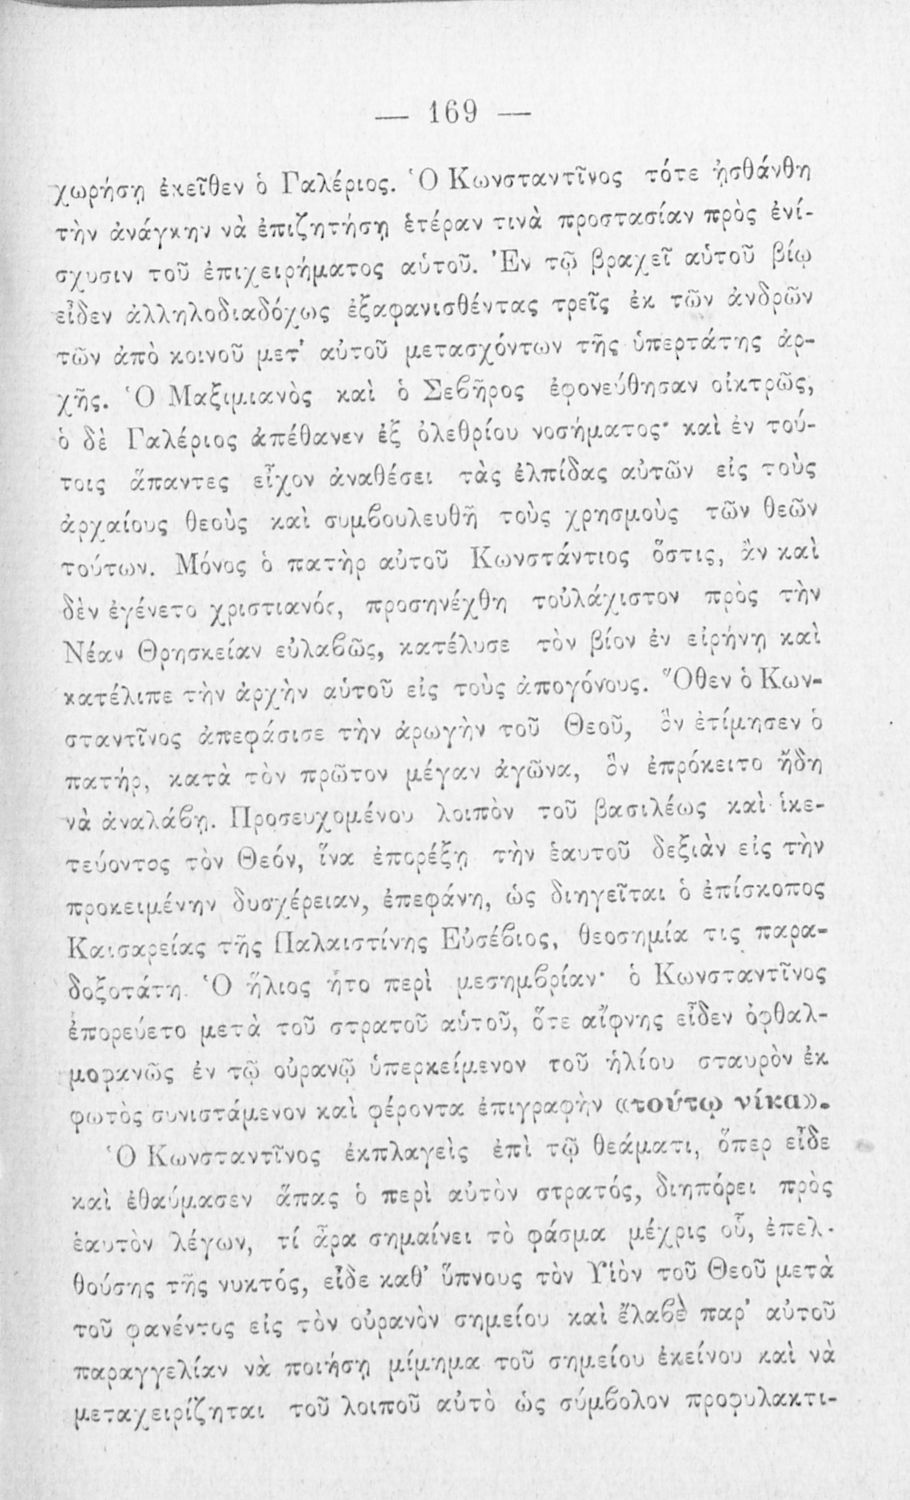 — 169 —
χωρήσῃ ἐκεῖθεν ὁ Γαλέριος. Ὁ Κωνσταντῖνος τότε ᾐσθάνθη
τὴν ἀνάγκην νὰ ἐπιζητήσῃ ἑτέραν τινὰ προστασίαν πρὸς ἐνί-
σχυσιν τοῦ ἐπιχειρήματος αὑτοῦ. Ἐν τῷ βραχεῖ αὑτοῦ βίῳ
εἶδεν ἀλληλοδιαδόχως ἐξαφανισθέντας τρεῖς ἐκ τῶν ἀνδρῶν
τῶν ἀπὸ κοινοῦ μετ' αὐτοῦ μετασχόντων τῆς ὑπερτάτης ἀρ-
χῆς. Ὁ Μαξιμιανὸς καὶ ὁ Σεβῆρος ἐφονεύθησαν οἰκτρῶς,
ὁ δὲ Γαλέριος ἀπέθανεν ἐξ ὀλεθρίου νοσήματος· καὶ ἐν τού-
τοις ἅπαντες εἶχον ἀναθέσει τὰς ἐλπίδας αὐτῶν εἰς τοὺς
ἀρχαίους θεοὺς καὶ συμβουλευθῆ τοὺς χρησμοὺς τῶν θεῶν
τούτων. Μόνος ὁ πατὴρ αὐτοῦ Κωνστάντιος ὅστις, ἂν καὶ
δὲν ἐγένετο χριστιανός, προσηνέχθη τοὐλάχιστον πρὸς τὴν
Νέαν Θρησκείαν εὐλαβῶς, κατέλυσε τὸν βίον ἐν εἰρήνῃ καὶ
κατέλιπε τὴν ἀρχὴν αὑτοῦ εἰς τοὺς ἀπογόνους. Ὅθεν ὁ Κων-
σταντῖνος ἀπεφάσισε τὴν ἀρωγὴν τοῦ Θεοῦ, ὃν ἐτίμησεν ὁ
πατήρ, κατὰ τὸν πρῶτον μέγαν ἀγῶνα, ὃν ἐπρόκειτο ἤδη
νὰ ἀναλάβῃ. Προσευχομένου λοιπὸν τοῦ βασιλέως καὶ ἱκε-
τεύοντος τὸν Θεόν, ἵνα ἐπορέξῃ τὴν ἑαυτοῦ δεξιὰν εἰς τὴν
προκειμένην δυσχέρειαν, ἐπεφάνη, ὡς διηγεῖται ὁ ἐπίσκοπος
Καισαρείας τῆς Παλαιστίνης Εὐσέβιος, θεοσημία τις παρα-
δοξοτάτη. Ὁ ἥλιος ἦτο περὶ μεσημβρίαν· ὁ Κωνσταντῖνος
ἐπορεύετο μετὰ τοῦ στρατοῦ αὑτοῦ, ὅτε αἴφνης εἶδεν ὀφθαλ-
μοφανῶς ἐν τῷ οὐρανῷ ὑπερκείμενον τοῦ ἡλίου σταυρὸν ἐκ
φωτὸς συνιστάμενον καὶ φέροντα ἐπιγραφὴν «τούτῳ νίκα».
Ὁ Κωνσταντῖνος ἐκπλαγεὶς ἐπὶ τῷ θεάματι, ὅπερ εἶδε
καὶ ἐθαύμασεν ἅπας ὁ περὶ αὐτὸν στρατός, διηπόρει πρὸς
ἑαυτὸν λέγων, τί ἆρα σημαίνει τὸ φάσμα μέχρις οὗ, ἐπελ-
θούσης τῆς νυκτός, εἶδε καθ' ὕπνους τὸν Υἱὸν τοῦ Θεοῦ μετὰ
τοῦ φανέντος εἰς τὸν οὐρανὸν σημείου καὶ ἔλαβὲ παρ' αὐτοῦ
παραγγελίαν νὰ ποιήσῃ μίμημα τοῦ σημείου ἐκείνου καὶ νὰ
μεταχειρίζηται τοῦ λοιποῦ αὐτὸ ὡς σύμβολον προφυλακτι-